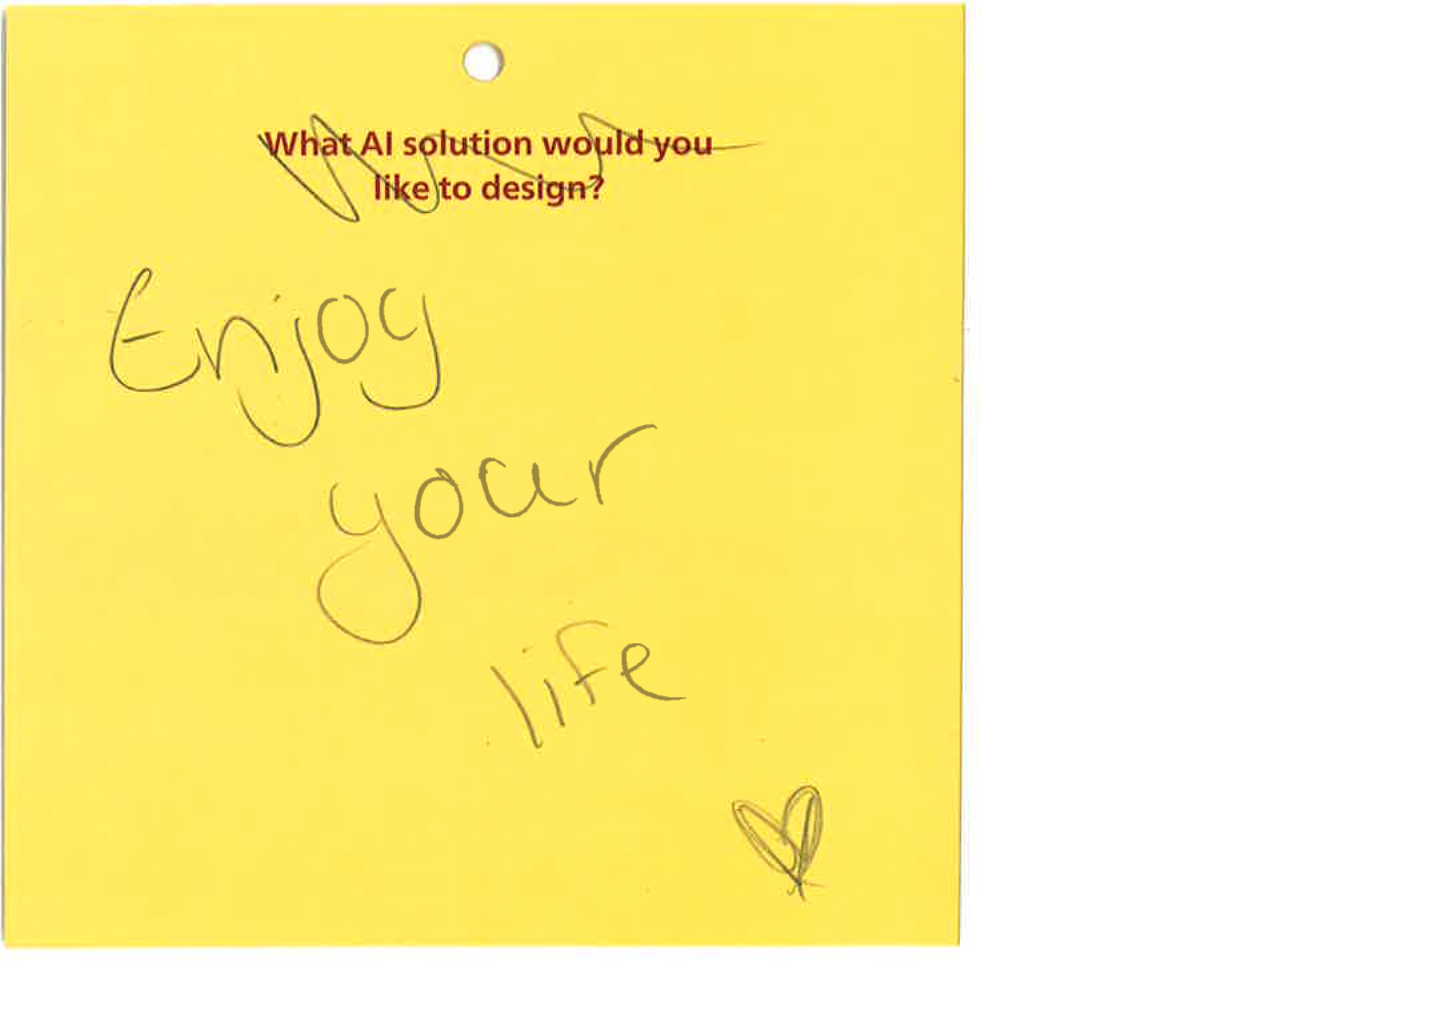 What AI solution would you
like to design?
Enjoy
your
life